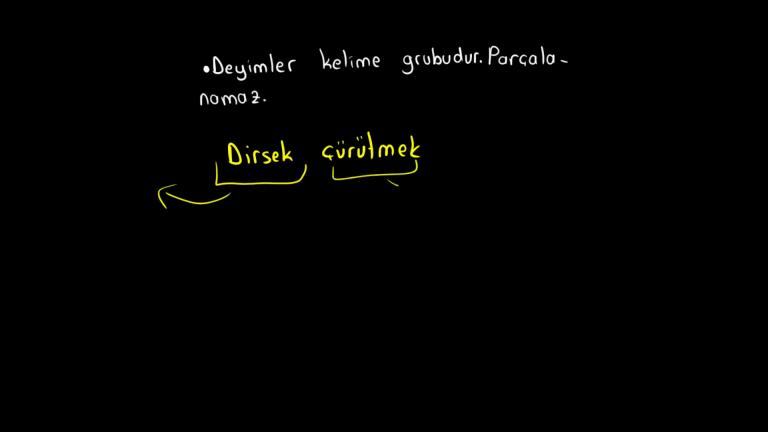 •Deyimler kelime grubudur. Parçala-
namaz.
Dirsek çürütmek